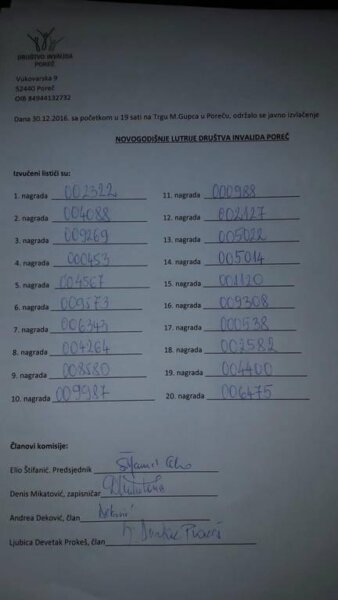 DRUŠTVO INVALIDA
POREČ
Vukovarska 9
52440 Poreč
OIB 84944132732
Dana 30.12.2016. sa početkom u 19 sati na Trgu M.Gupca u Poreču, održalo se javno izvlačenje
NOVOGODIŠNJE LUTRIJE DRUŠTVA INVALIDA POREČ
Izvučeni listići su:
1. nagrada 002322
2. nagrada 004088
3. nagrada 009269
4. nagrada 000453
5. nagrada 004567
6. nagrada 009573
7. nagrada 006343
8. nagrada 004264
9. nagrada 008580
10. nagrada 009987
11. nagrada 000988
12. nagrada 002127
13. nagrada 005022
14. nagrada 005014
15. nagrada 001120
16. nagrada 009308
17. nagrada 000538
18. nagrada 002582
19. nagrada 004400
20. nagrada 006475
Članovi komisije:
Elio Štifanić, Predsjednik
Denis Mikatović, zapisničar
Andrea Deković, član
Ljubica Devetak Prokeš, član